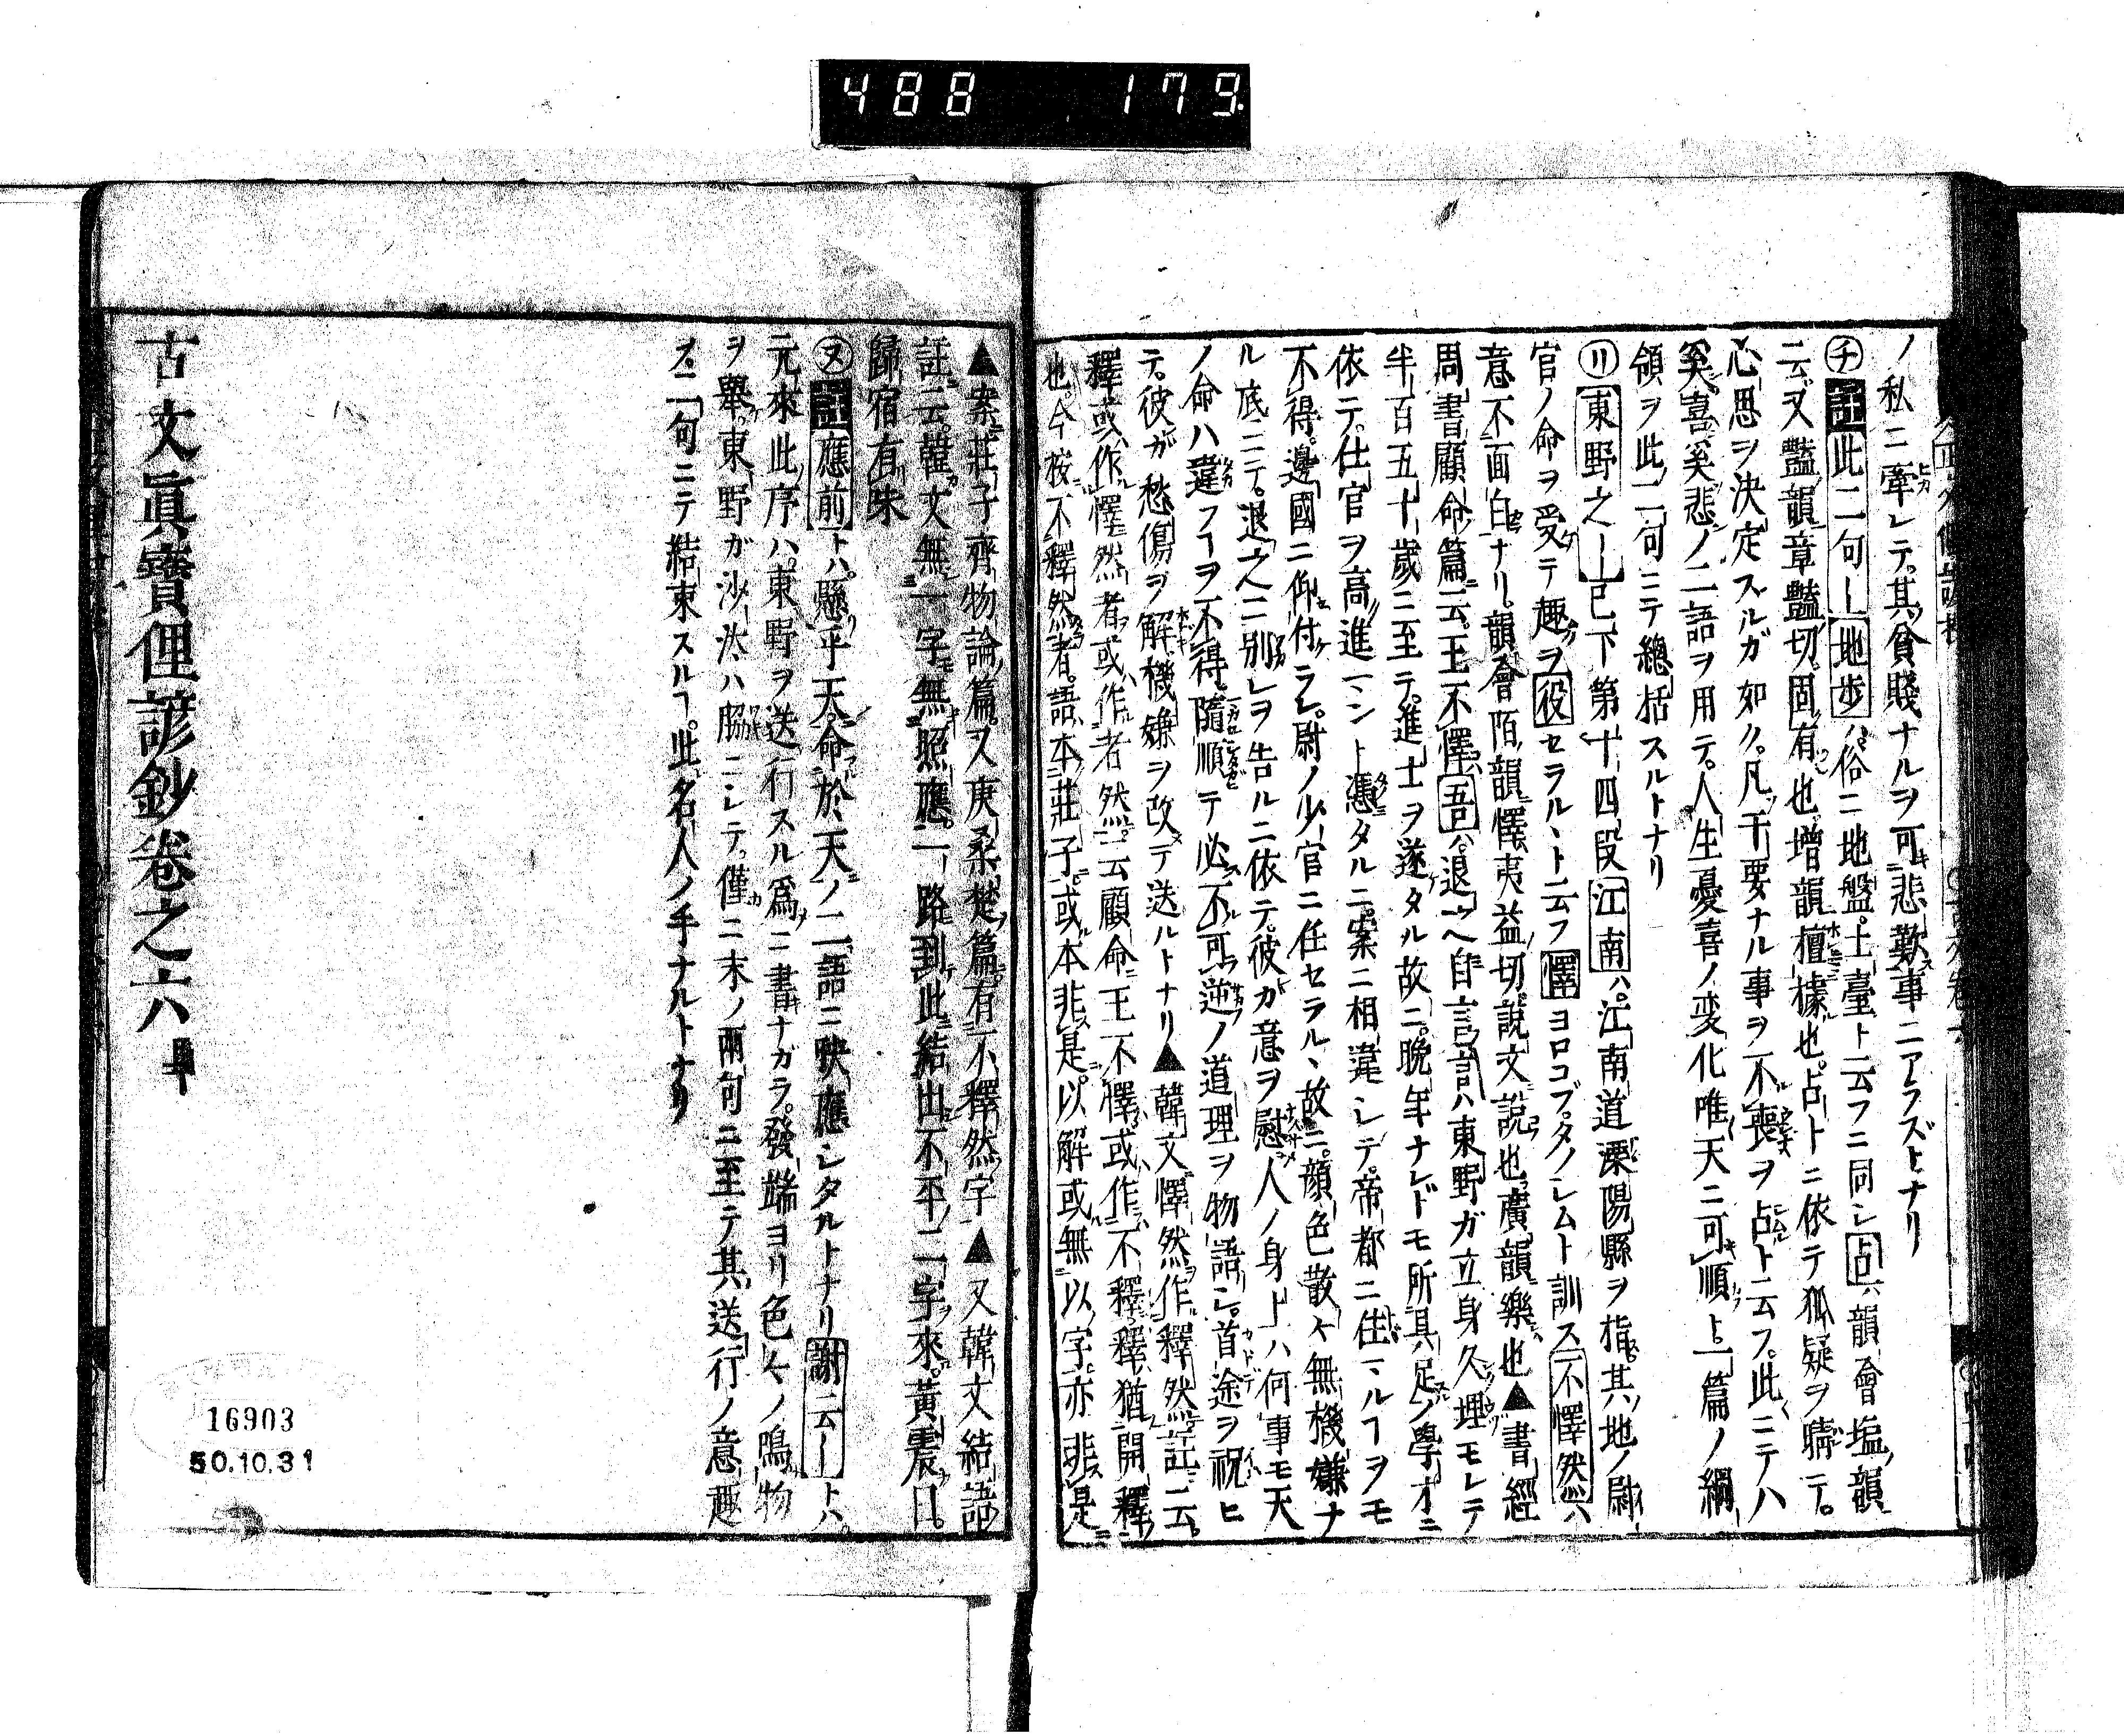 488 179
ノ私ニ牽レテ。其貧賤ナルヲ可悲歎事ニアラズトナリ
㋠註此二句―地歩ハ。俗ニ地盤。土臺ト云フニ同シ占ハ韻會塩韻
云。又豔韻章豔切。固有也。増韻擅據也。占トニ依テ狐疑ヲ晴テ。
心思ヲ決定スルガ如ク。凡干要ナル事ヲ不喪ヲ占ト云フ。此ニテハ
奚喜奚悲ノ二語ヲ用テ。人生憂喜ノ変化唯天ニ可順ト。一篇ノ綱
領ヲ此ノ二句ニテ總括スルトナリ
㋷東野之―已下第十四段江南ハ。江南道溧陽縣ヲ指。其地ノ尉
官ノ命ヲ受テ趣ヲ役セラルヽト云フ懌ヨロコブ。タノシムト訓ス不懌然ハ
意不面白ナリ。韻會陌韻懌夷益切。説文説也。廣韻樂也▲書經
周書顧命篇云。王不懌吾ハ。退之自言訁ハ東野ガ立身久埋モレテ
半百五十歳ニ至テ。進士ヲ遂タル故ニ。晩年ナレドモ所具足ノ學才ニ
依テ。仕官ヲ高進マント憑タルニ。案ニ相違シテ。帝都ニ住マルヿヲモ
不得。邊國ニ仰付ラレ。尉ノ少官ニ任セラルヽ故ニ。顔色散々無機嫌ナ
ル底ニテ。退之ニ別レヲ告ルニ依テ。彼ガ意ヲ慰。人ノ身上ハ何事モ天
ノ命ハ違フヿヲ不得。隨順テ必不可逆ノ道理ヲ物語シ。首途ヲ祝ヒ
テ。彼ガ愁傷ヲ解機嫌ヲ改テ送ルトナリ▲韓文懌然作釋然註云。
釋或作懌然者或作者然。云顧命王不懌或作不釋釋猶開釋
也。今按不釋然者。語本莊子或本非是。以解或無以字亦非是
▲案莊子齊物論篇。又庚桑楚篇有不釋然字▲又韓文結語
註云。韓文無一字無照應。一路到此結出不平二字來。黃震曰。
歸宿有味
㋦註應前トハ。懸乎天。命於天ノ二語ニ映應シタルトナリ謝云―トハ。
元來此序ハ。東野ヲ送行スル為ニ書ナガラ。發端ヨリ色々ノ鳴物
ヲ舉。東野ガ沙汰ハ脇ニシテ。僅ニ末ノ兩句ニ至テ其送行ノ意趣
ヲ。二句ニテ結束スルヿ。此名人ノ手ナルトナリ
古文眞寶俚諺鈔卷之六畢
16903
50.10.31